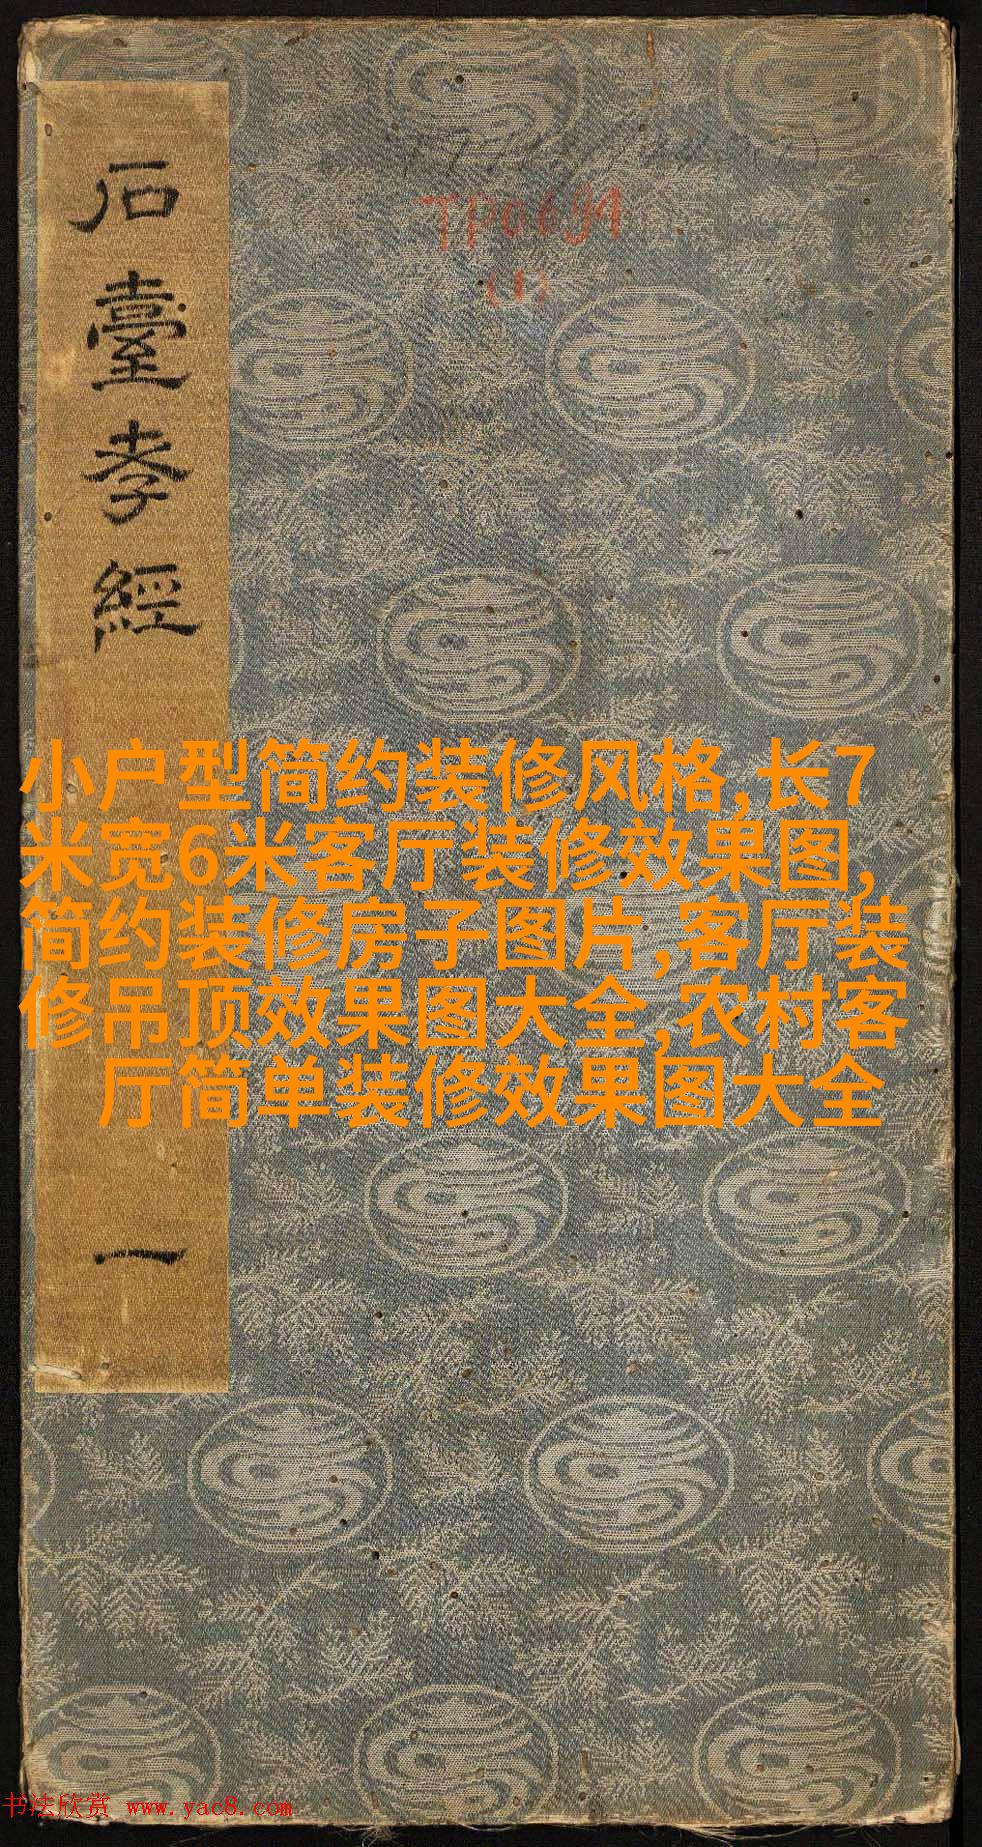 石臺孝經
一
TP0691
(1)
小户型简约装修风格,长7
米宽6米客厅装修效果图,
简约装修房子图片,客厅装
修吊顶效果图大全,农村客
厅简单装修效果图大全
书法欣赏 www.yac8.com